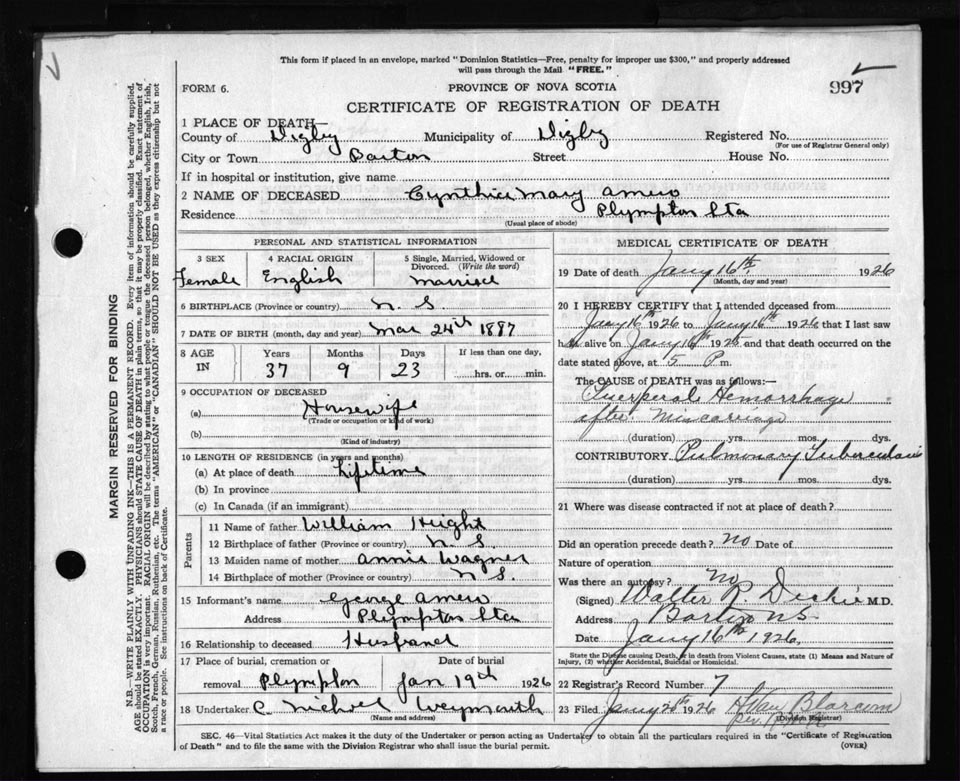 This form if placed in an envelope, marked "Dominion Statistics—Free, penalty for improper use $300," and properly addressed
will pass through the Mail "FREE."
FORM 6.
PROVINCE OF NOVA SCOTIA
997
CERTIFICATE OF REGISTRATION OF DEATH
1 PLACE OF DEATH—
County of Digby Municipality of Digby Registered No.
(For use of Registrar General only)
City or Town Barton Street House No.
If in hospital or institution, give name
2 NAME OF DECEASED Cynthia Mary Amero
Residence Plympton Sta
(Usual place of abode)
PERSONAL AND STATISTICAL INFORMATION
3 SEX 4 RACIAL ORIGIN 5 Single, Married, Widowed or
Divorced. (Write the word)
Female English Married
6 BIRTHPLACE (Province or country) N. S.
7 DATE OF BIRTH (month, day and year) Mar 24th 1887
8 AGE Years Months Days If less than one day,
IN 37 9 23 hrs. or min.
9 OCCUPATION OF DECEASED
(a) Housewife
(Trade or occupation or kind of work)
(b)
(Kind of industry)
10 LENGTH OF RESIDENCE (in years and months)
(a) At place of death Lifetime
(b) In province
(c) In Canada (if an immigrant)
Parents
11 Name of father William Hight
12 Birthplace of father (Province or country) N. S.
13 Maiden name of mother Annie Wagner
14 Birthplace of mother (Province or country) N S.
15 Informant's name George Amero
Address Plympton Sta
16 Relationship to deceased Husband
17 Place of burial, cremation or Date of burial
removal Plympton Jan 19th 1926
18 Undertaker C. Weymouth
(Name and address)
MEDICAL CERTIFICATE OF DEATH
19 Date of death Jany 16th. 1926
(Month, day and year)
20 I HEREBY CERTIFY that I attended deceased from
Jany 16th 1926 to Jany 16th 1926 that I last saw
h alive on Jany 16th 192 and that death occurred on the
date stated above, at 5 P m.
The CAUSE of DEATH was as follows:—
Puerperal Hemorrhage
after Miscarriage
(duration) yrs. mos. dys.
CONTRIBUTORY Pulmonary Tuberculosis
(duration) yrs. mos. dys.
21 Where was disease contracted if not at place of death?
Did an operation precede death? no Date of
Nature of operation
Was there an autopsy? no
(Signed) Walter R. M.D.
Address Barton NS
Date Jany 16th 1926.
State the Disease causing Death, or in death from Violent Causes, state (1) Means and Nature of
Injury, (2) whether Accidental, Suicidal or Homicidal.
22 Registrar's Record Number 7
23 Filed Jany 1926
(Division Registrar)
SEC. 46—Vital Statistics Act makes it the duty of the Undertaker or person acting as Undertaker to obtain all the particulars required in the "Certificate of Registration
of Death" and to file the same with the Division Registrar who shall issue the burial permit.
(OVER)
MARGIN RESERVED FOR BINDING
N.B.—WRITE PLAINLY WITH UNFADING INK—THIS IS A PERMANENT RECORD. Every item of information should be carefully supplied.
AGE should be stated EXACTLY. PHYSICIANS should STATE CAUSE OF DEATH in plain terms, so that it may be properly classified. Exact statement of
OCCUPATION is very important. RACIAL ORIGIN will be described by stating to what people or tongue the deceased person belonged, whether English, Irish,
Scotch, French, German, Russian, Ruthenian, etc. The terms "AMERICAN" or "CANADIAN" SHOULD NOT BE USED as they express citizenship but not
a race or people. See instructions on back of Certificate.